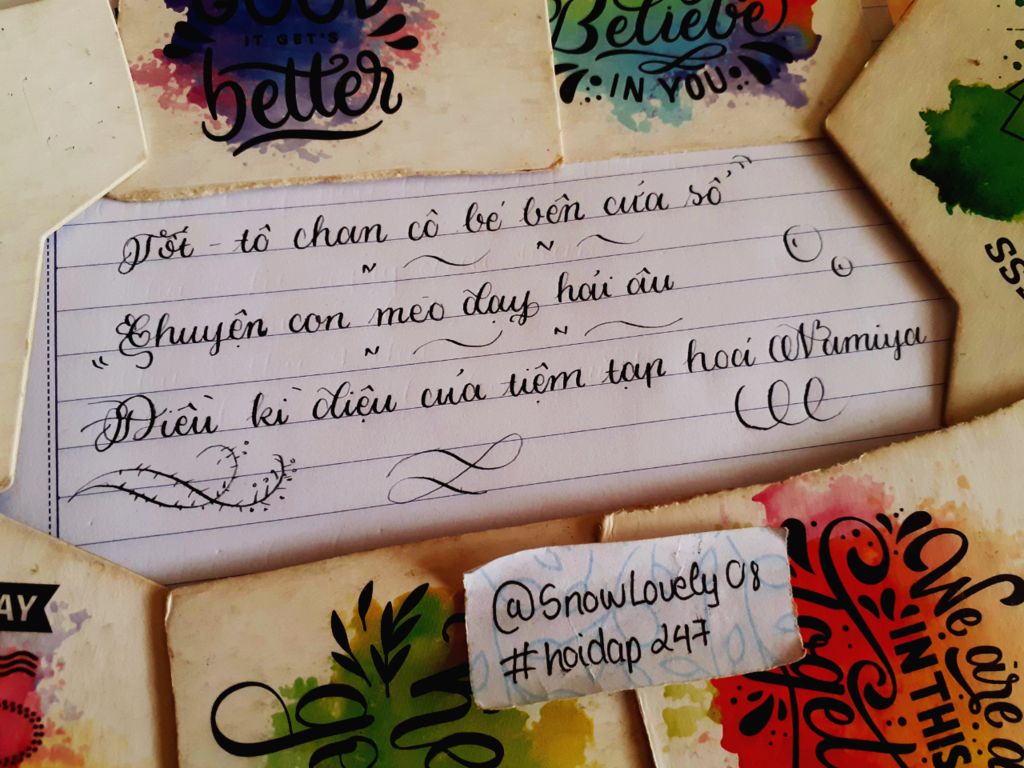 GOOD
IT GET'S
better
Believe
IN YOU
Tốt - tô chan cô bé bên cửa sổ"
"Chuyện con mèo dạy hải âu
Điều kì diệu của tiệm tạp hoá Namiya
@SnowLovely08
#hoidap247
AY
We are
IN THIS
Toget
SS